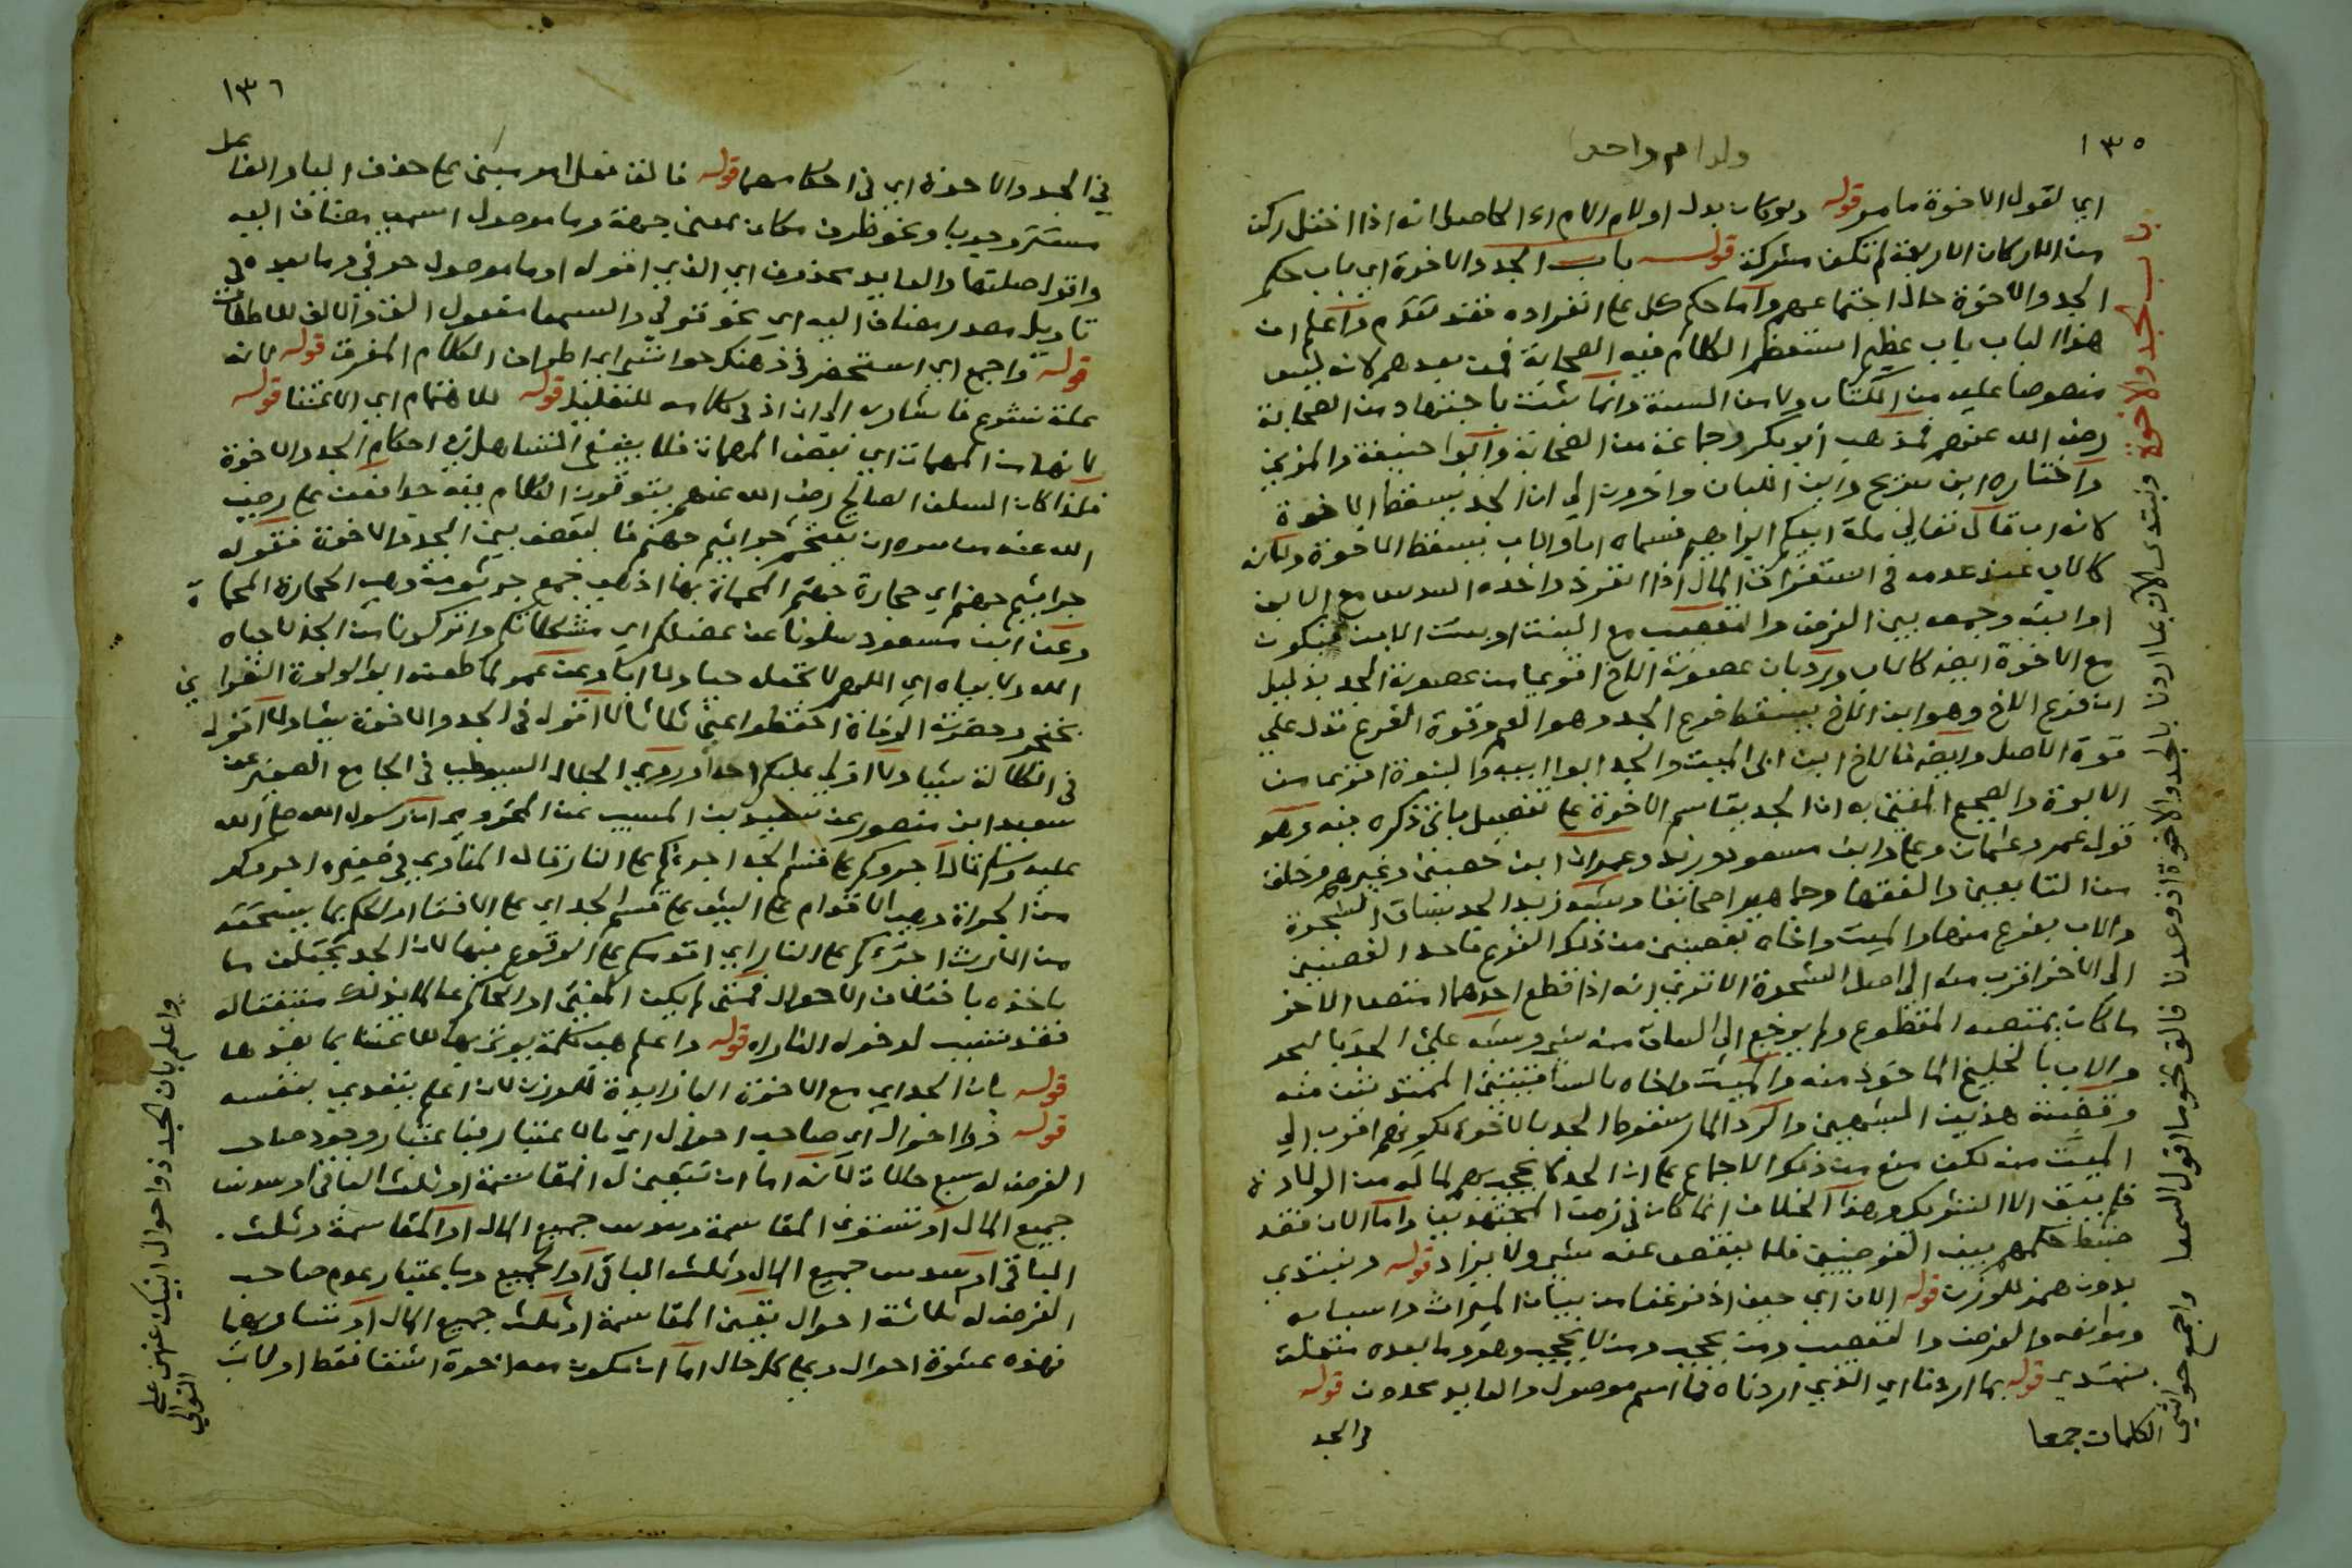 ١٣٥
ولدام واحد
اي لقول الاخوة ما مر قوله ولو كان بدل الام الحاصل انه اذا اختل ركن
من الاركان الاربعة لم تكن مشركة قوله باب الجد والاخوة اي باب حكم
الجد والاخوة حال اجتماعهم واما حكم كل على انفراده فقد تقدم واعلم ان
هذا الباب باب عظيم استعظم الكلام فيه الصحابة فمن بعدهم لانه ليس
منصوصا عليه من الكتاب ولا من السنة وانما ثبت باجتهاد من الصحابة
رضي الله عنهم فمذهب ابو بكر وجماعة من الصحابة وابوا حنيفة والمزني
واختاره ابن سريج وابن اللبان واخرون الي ان الجد يسقط الاخوة
لانه اب قال تعالي ملة ابيكم ابراهيم فسماه ابا والاب يسقط الاخوة ولانه
كالاب عند عدمه في استغراق المال اذا انفرد واخذه السدس مع الابن
او ابنه وجمعه بين الفرض والتعصيب مع البنت او بنت الابن فيكون
مع الاخوة ايضا كالاب ورد بان عصوبة الاخ اقوي من عصوبة الجد بدليل
ان فرع الاخ وهو ابن الاخ يسقط فرع الجد وهو العم وقوة الفرع تدل علي
قوة الاصل وايضا فالاخ ابن ابي الميت والجد ابوا ابيه والبنوة اقوي من
الابوة والصحيح المفتي به ان الجد يقاسم الاخوة على تفصيل ياتي ذكره فيه وهو
قول عمر وعثمان وعلي وابن مسعود وزيد وعمران ابن حصين وغيرهم وخلف
من التابعين والفقها وجماهير اصحابنا وشبه زيد الجد بساق الشجرة
والاب بفرع منها والميت واخاه بغصنين من ذلك الفرع فاحد الغصنين
الي الاخر اقرب منه الي اصل الشجرة الا تري انه اذا قطع احدهما امتص الاخر
ما كان يمتصه المقطوع ولم يرجع الي الساق منه شي وشبه علي الجد بالبحر
والاب بالخليج الماخوذ منه والميت واخاه بالساقيتين الممتدتين منه
وقضية هذين التشبيهين سقوط الجد بالاخوة لكونهم اقرب الي
الميت منه لكن منع من ذلك الاجماع على ان الجد لا يحجب بهم لما له من الولادة
فلم يبق الا التشريك وهذا الخلاف انما كان في زمن المجتهدين واما الان فقد
ضبط حكمهم بين الفرضيين فلا ينقص عنه شي ولا يزاد قوله ونبتدي
بدون همز للوزن قوله الان اي حين اذ فرغنا من بيان الميراث واسبابه
وموانعه والفرض والتعصيب ومن يحجب ومن لا يحجب وهو وما بعده متعلق
بنبتدي قوله بما اردنا اي الذي اردناه فما اسم موصول والعايد محذوف قوله
في الجد
باب الجد والاخوة ونبتدي الان بما اردنا بالجد والاخوة اذ وعدنا فالق نحو ما اقول السمعا واجمع حواشي
الكلمات جمعا
١٣٦
في الجد والاخوة اي في احكامهما قوله فالق فعل امر مبني على حذف اليا والفاعل
مستتر وجوبا ونحو ظرف مكان بمعني جهة وما موصول اسمي مضاف اليه
واقول صلتها والعايد محذوف اي الذي اقوله او ما موصول حرفي وما بعده في
تاويل مصدر مضاف اليه اي نحو قولي والسمعا مفعول الق والالف للاطلاق
قوله واجمع اي استحضر في ذهنك حواشي اي اطراف الكلام المفرق قوله لانه
علة تنوع فاشار به الي ان اذ في كلامه للتعليل قوله للاهتمام اي الاعتنا قوله
لانها من المهمات اي بعض المهمات فلا ينبغي التساهل في احكام الجد والاخوة
فلذا كان السلف الصالح رضي الله عنهم يتوقون الكلام فيه جدا فعن علي رضي
الله عنه من سره ان يقتحم جراثيم جهنم فليقض بين الجد والاخوة فقوله
جراثيم جهنم اي حجارة جهنم المحماة بها اذ هي جمع جرثومة وهي الحجارة المحماة
وعن ابن مسعود سلونا عن عضلكم اي مشكلاتكم واتركونا من الجد لا حياه
الله ولا بياه اي اللهم لا تجعل حيا ولا وعن عمر لما طعنه ابو لولوة
بخنجر وحضرته الوفاة احفظوا عني ثلاثا لا اقول في الجد والاخوة شيا ولا اقول
في الكلالة شيا ولا اولي عليكم احدا وروي الجلال السيوطي في الجامع الصغير عن
سعيد ابن منصور عن سعيد بن المسيب عن ان رسول الله صلى الله
عليه وسلم قال اجروكم على قسم الجد اجروكم على النار قال المناوي في صغيره اجروكم
من الجراة وهي الاقدام على الشي على قسم الجد اي على الافتا او الحكم بما يستحقه
من الارث اجروكم على النار اي اقدمكم على الوقوع فيها لان الجد يختلف ما
ياخذه باختلاف الاحوال فمتي لم يكن المفتي او الحاكم عالما بذلك متقنا له
فقد تسبب لدخول النار اه قوله واعلم هي كلمة يوتي بها للاعتنا بما بعدها
قوله بان الجد اي مع الاخوة البا زايدة للوزن لان اعلم يتعدي بنفسه
قوله ذوا احوال اي صاحب احوال اي بالاعتبار فباعتبار وجود صاحب
الفرض له سبع حالات لانه اما ان تتعين له المقاسمة او ثلث الباقي او سدس
جميع المال او تستوي المقاسمة وسدس جميع المال او المقاسمة وثلث
الباقي او سدس جميع المال وثلث الباقي او الجميع وباعتبار عدم صاحب
الفرض له ثلاثة احوال تعين المقاسمة او ثلث جميع المال او تساويهما
فهذه عشرة احوال وعلى كل حال اما ان يكون معه اخوة اشقا فقط او لاب
واعلم بان الجد ذوا احوال انبيك عنهن علي
التوالي